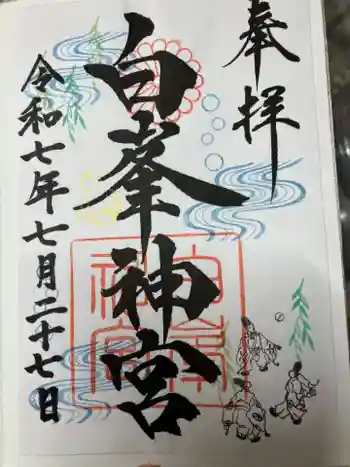 奉拝
白峯神宮
令和七年七月二十七日
白峯神宮